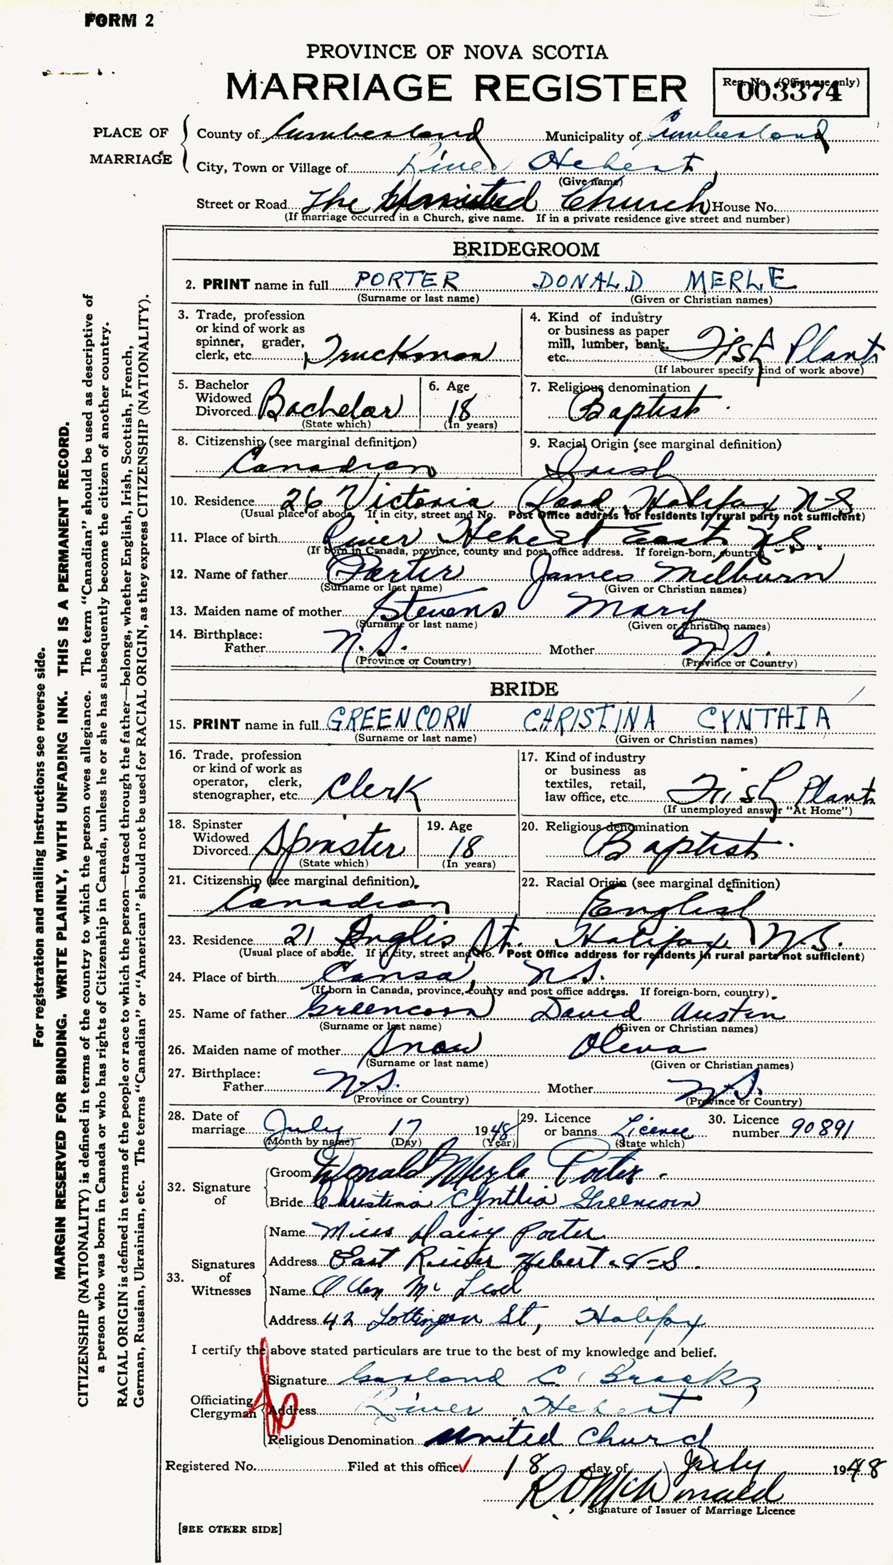 FORM 2
PROVINCE OF NOVA SCOTIA
MARRIAGE REGISTER
Reg. No. (Office use only)
003374
PLACE OF MARRIAGE
County of Cumberland Municipality of Cumberland
City, Town or Village of River Hebert
(Give name)
Street or Road The United Church House No.
(If marriage occurred in a Church, give name. If in a private residence give street and number)
BRIDEGROOM
2. PRINT name in full PORTER DONALD MERLE
(Surname or last name) (Given or Christian names)
3. Trade, profession or kind of work as spinner, grader, clerk, etc. Truckman
4. Kind of industry or business as paper mill, lumber, bank, etc. Fish Plant
(If labourer specify kind of work above)
5. Bachelor Widowed Divorced Bachelor
(State which)
6. Age 18
(In years)
7. Religious denomination
Baptist.
8. Citizenship (see marginal definition)
Canadian
9. Racial Origin (see marginal definition)
Irish
10. Residence 26 Victoria Road, Halifax N-S
(Usual place of abode. If in city, street and No. Post Office address for residents in rural parts not sufficient)
11. Place of birth River Hebert East N.S.
(If born in Canada, province, county and post office address. If foreign-born, country)
12. Name of father Porter James Milburn
(Surname or last name) (Given or Christian names)
13. Maiden name of mother Stevens Mary
(Surname or last name) (Given or Christian names)
14. Birthplace: Father N.S. Mother N.S.
(Province or Country) (Province or Country)
BRIDE
15. PRINT name in full GREENCORN CHRISTINA CYNTHIA
(Surname or last name) (Given or Christian names)
16. Trade, profession or kind of work as operator, clerk, stenographer, etc. Clerk
17. Kind of industry or business as textiles, retail, law office, etc. Fish Plant
(If unemployed answer "At Home")
18. Spinster Widowed Divorced Spinster
(State which)
19. Age 18
(In years)
20. Religious denomination
Baptist.
21. Citizenship (see marginal definition)
Canadian
22. Racial Origin (see marginal definition)
English
23. Residence 21 Inglis St. Halifax N.S.
(Usual place of abode. If in city, street and No. Post Office address for residents in rural parts not sufficient)
24. Place of birth Canso, N.S.
(If born in Canada, province, county and post office address. If foreign-born, country)
25. Name of father Greencorn David Austin
(Surname or last name) (Given or Christian names)
26. Maiden name of mother Snow Oleva
(Surname or last name) (Given or Christian names)
27. Birthplace: Father N.S. Mother N.S.
(Province or Country) (Province or Country)
28. Date of marriage July 17 1948
(Month by name) (Day) (Year)
29. Licence or banns License
(State which)
30. Licence number 90891
32. Signature of
Groom Donald Merle Porter.
Bride Christina Cynthia Greencorn
33. Signatures of Witnesses
Name Miss Daisy Porter
Address East River Hebert N-S.
Name McLeod
Address 42 St, Halifax
I certify the above stated particulars are true to the best of my knowledge and belief.
Officiating Clergyman
Signature Garland C. Brooks
Address River Hebert
Religious Denomination United Church
Registered No. Filed at this office 18 day of July 1948
R O McDonald
Signature of Issuer of Marriage Licence
[SEE OTHER SIDE]
For registration and mailing instructions see reverse side.
MARGIN RESERVED FOR BINDING. WRITE PLAINLY, WITH UNFADING INK. THIS IS A PERMANENT RECORD.
CITIZENSHIP (NATIONALITY) is defined in terms of the country to which the person owes allegiance. The term "Canadian" should be used as descriptive of
a person who was born in Canada or who has rights of Citizenship in Canada, unless he or she has subsequently become the citizen of another country.
RACIAL ORIGIN is defined in terms of the people or race to which the person—traced through the father—belongs, whether English, Irish, Scottish, French,
German, Russian, Ukrainian, etc. The terms "Canadian" or "American" should not be used for RACIAL ORIGIN, as they express CITIZENSHIP (NATIONALITY).